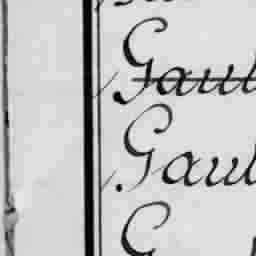 Gaul
Gaul
G